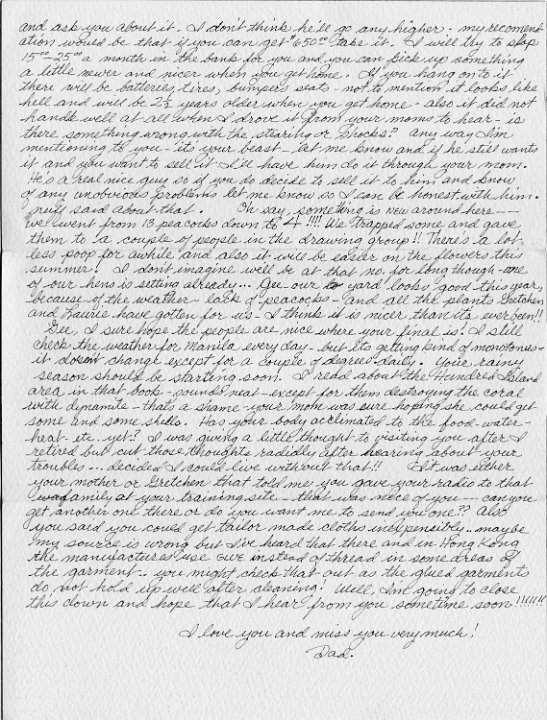 and ask you about it - I don't think he'll go any higher - my recomend
ation would be that if you can get $650.00 take it. I will try to slap
15.00 - 25.00 a month in the bank for you and you can pick up something
a little newer and nicer when you get home. If you hang on to it
there will be batteries, tires, bumpers seats - not to mention it looks like
hell and will be 2½ years older when you get home - also it did not
handle well at all when I drove it from your moms to hear - is
there something wrong with the stearing or shocks? Any way I'm
mentioning to you - its your beast - let me know and if he still wants
it and you want to sell it I'll have him do it through your mom.
He's a real nice guy so if you do decide to sell it to him and know
of any unobvious problems let me know so I can be honest with him.
nuff said about that. Oh say, something is new around here --
we went from 13 peacocks down to 4 !!!! We trapped some and gave
them to a couple of people in the drawing group!! There's a lot
less poop for awhile and also it will be easier on the flowers this
summer! I don't imagine well be at that no. for long though - one
of our hens is setting already... Gee - our yard looks good this year,
because of the weather - lack of peacocks - and all the plants Gretchen
and Laurie have gotten for us - I think it is nicer than its ever been!!
Gee, I sure hope the people are nice where your final is. I still
check the weather for Manila every day - but its getting kind of monotonous -
it dosent change except for a couple of degrees daily. You're rainy
season should be starting soon. I read about the Hundred Island
area in that book - sounds neat - except for them destroying the coral
with dynamite - thats a shame - your mom was sure hoping she could get
some and some shells. Has your body acclimated to the food - water -
heat etc. yet? I was giving a little thought to visiting you after I
retired but cut those thoughts radidly after hearing about your
troubles... decided I could live without that!! It was either
your mother or Gretchen that told me you gave your radio to that
family at your training site - that was nice of you --- can you
get another one there or do you want me to send you one?? Also
you said you could get tailor made cloths inexpensibly.. maybe
my source is wrong but I've heard that there and in Hong Kong
the manufactures use GLUE instead of thread in some areas of
the garment.. you might check that out as the glued garments
do not hold up well after cleaning! Well, I'm going to close
this down and hope that I hear from you sometime soon !!!!!!!
I love you and miss you very much!
Dad.